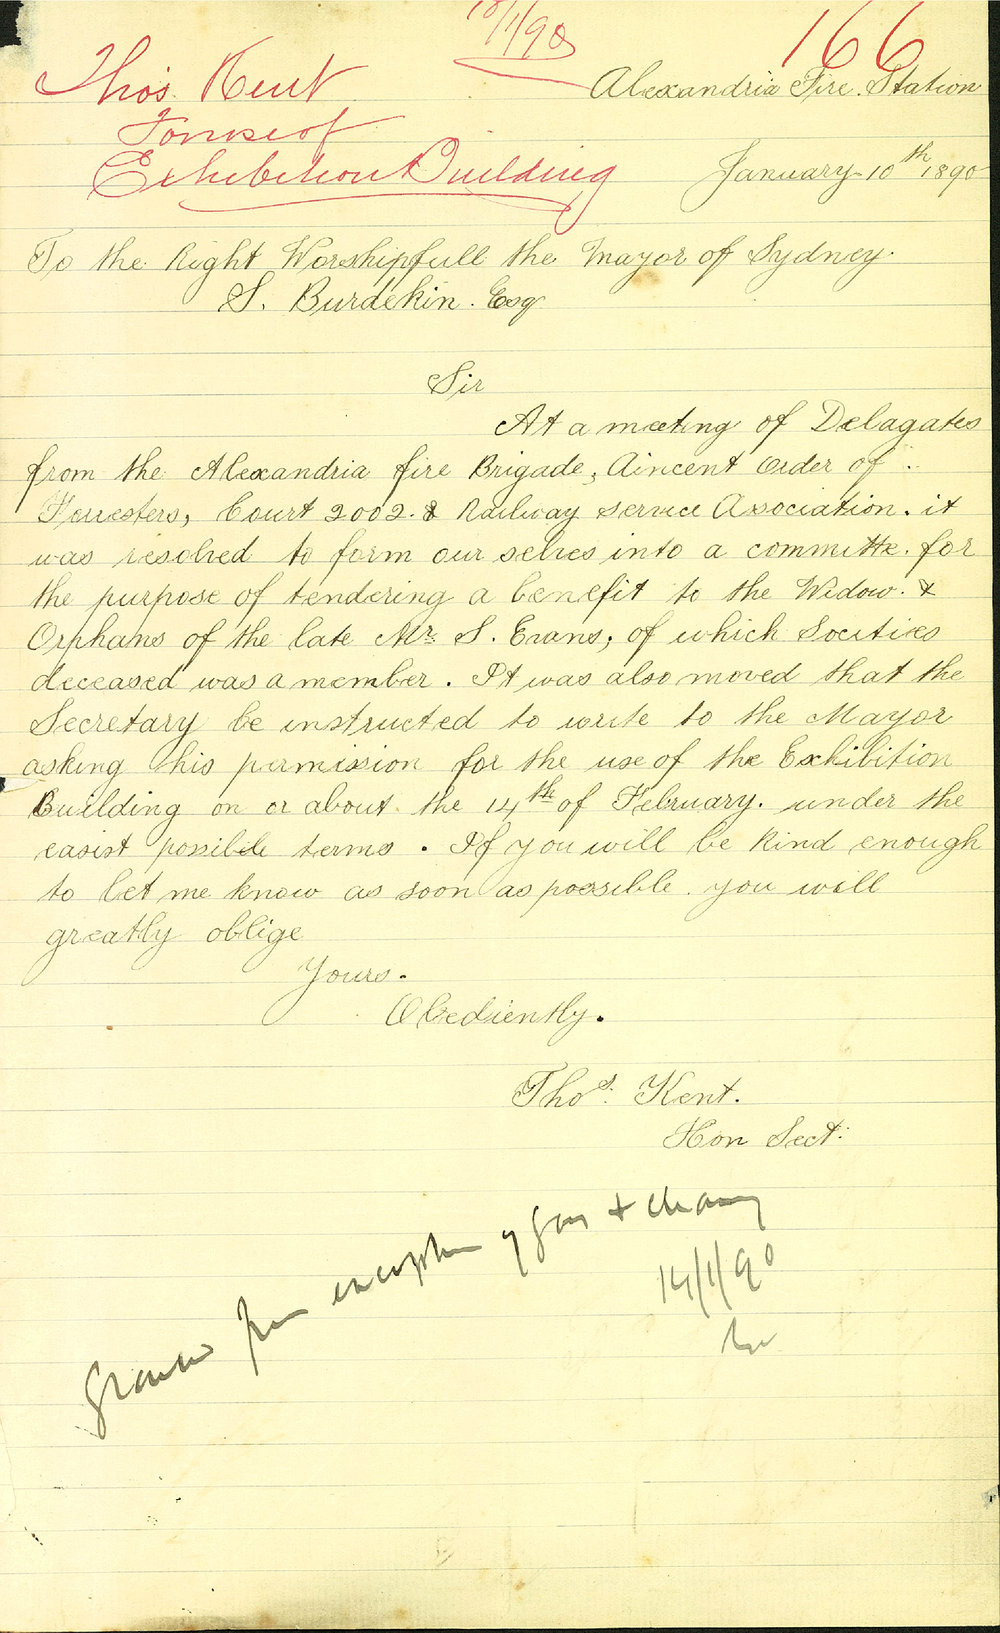 10/1/90
166
Thos. Kent
For use of
Exhibition Building
Alexandria Fire. Station
January 10th 1890
To the Right Worshipfull the Mayor of Sydney.
S. Burdekin. Esq
Sir
At a meeting of Delagates
from the Alexandria fire Brigade, Aincent Order of
Forresters, Court 2002. & Railway Service Association. it
was resolved to form our selves into a committe. for
the purpose of tendering a benefit to the Widow. &
Orphans of the late Mr. S. Evans, of which Socities
deceased was a member. It was also moved that the
Secretary be instructed to write to the Mayor
asking his permission for the use of the Exhibition
Building on or about the 14th of February. under the
easist possible terms. If you will be kind enough
to let me know as soon as possible. you will
greatly oblige
Yours.
Obediently.
Thos. Kent.
Hon Sect:
Granted free exception of gas & cleaning
14/1/90